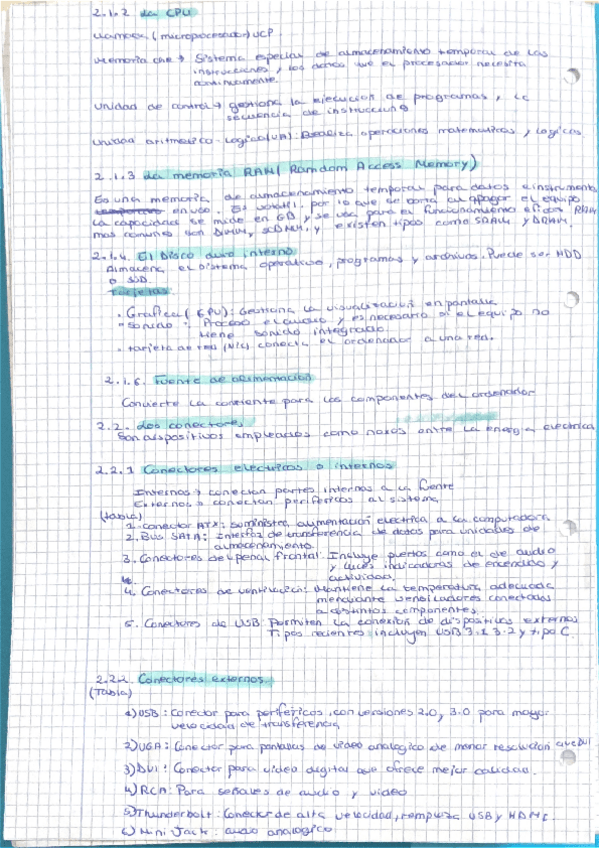 2.1.2 La CPU
Llamada (microprocesador) UCP
Memoria che → Sistema especial de almacenamiento temporal de las
instrucciones, los datos que el procesador necesita
continuamente.
Unidad de control → gestiona la ejecucion de programas, la
secuencia de instrucciones
Unidad aritmetico-logica (UA): Realiza operaciones matematicas y logicas.
2.1.3 La memoria RAM (Ramdom Access Memory)
Es una memoria de almacenamiento temporal para datos e
en uso. Es volatil, por lo que se borra al apagar el equipo
la capacidad se mide en GB y se usa para el funcionamiento RAM
mas comunes son DIMM, SODIMM, y existen tipos como SRAM y DRAM.
2.1.4. El Disco duro interno
Almacena el sistema operativo, programas y archivos. Puede ser HDD
o SSD.
Tarjetas
. Grafica (GPU): Gestiona la visualización en pantalla
"sonido": Procesa el audio y es necesario si el equipo no
tiene sonido integrado.
. tarjeta de red (NIC) conecta el ordenador a una red.
2.1.6. Fuente de alimentacion
Convierte la corriente para los componentes del ordenador
2.2. Los conectores
Son dispositivos empleados como nexos entre la energia electrica
2.2.1 Conectores electricos o internos
Internos → conectan partes internas a la fuente
Externos → conectan perifericos al sistema
(tabla)
1. conector ATX: suministra alimentación electrica a la computadora
2. Bus SATA: Interfaz de transferencia de datos para unidades de
almacenamiento.
3. Conectores del panel frontal: Incluye puertos como el de audio
y luces indicadoras de encendido y
actividad.
4. Conectores de ventilación: Mantiene la temperatura adecuada
mendiante ventiladores conectados
a distintos componentes.
5. Conectores de USB: Permiten la conexion de dispositivos externos
Tipos recientes incluyen USB 3.1 3.2 y tipo C.
2.2.2. Conectores externos
(Tabla)
1) USB: Conector para periféricos, con versiones 2.0, 3.0 para mayor
velocidad de transferencia
2) VGA: Conector para pantallas de video analogico de menor resolucion que DVI
3) DVI: Conector para video digital que ofrece mejor calidad.
4) RCA: Para señales de audio y video
5) Thunderbolt: Conector de alta velocidad, remplaza USB y HDMI.
6) Mini Jack: audio analogico